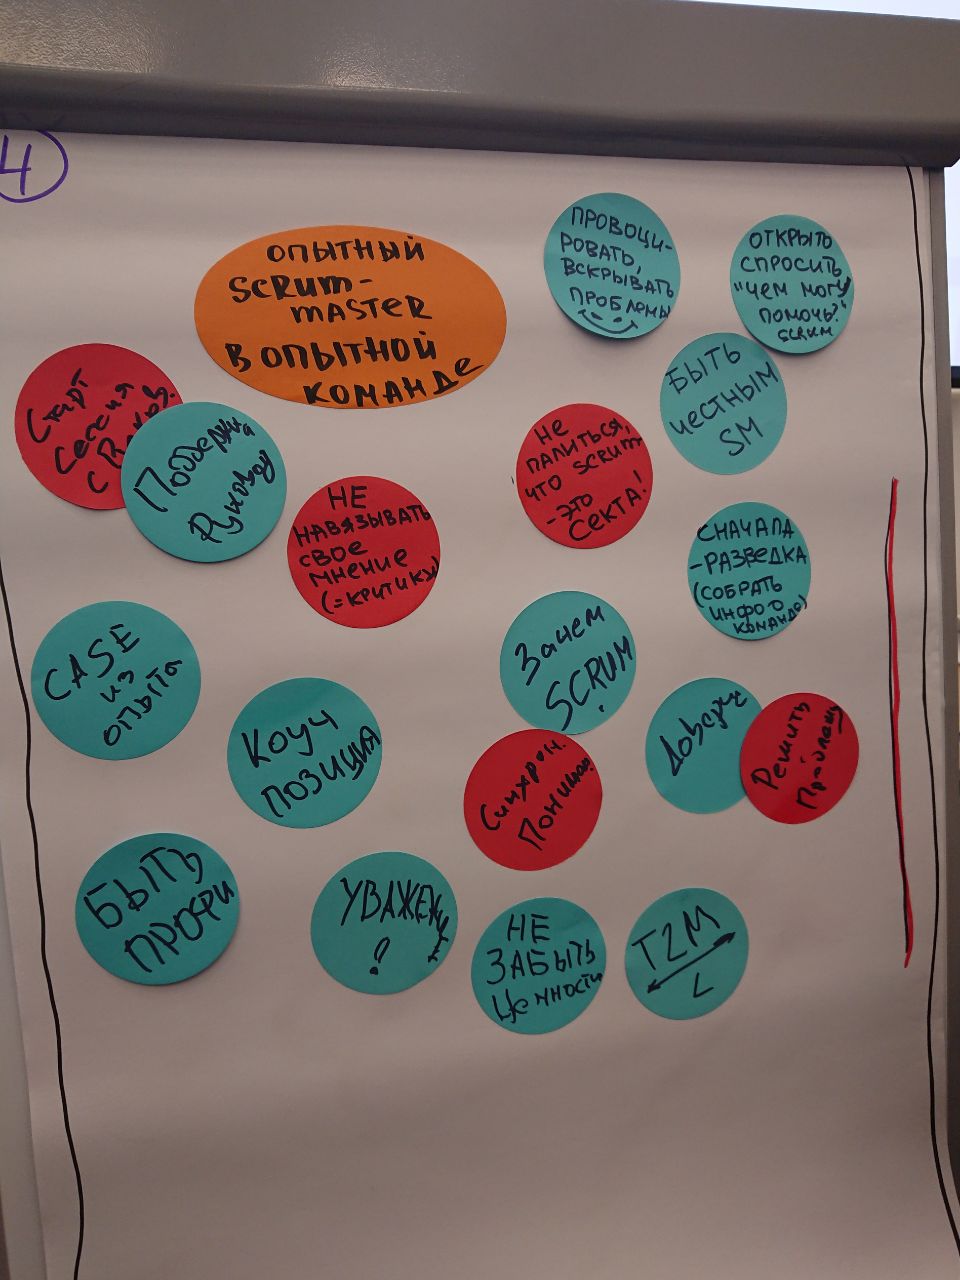 4
ОПЫТНЫЙ
SCRUM-
MASTER
В ОПЫТНОЙ
КОМАНДЕ
ПРОВОЦИ-
РОВАТЬ,
ВСКРЫВАТЬ
ПРОБЛЕМЫ
ОТКРЫТО
СПРОСИТЬ
"ЧЕМ МОГУ
ПОМОЧЬ?"
SCRUM
БЫТЬ
ЧЕСТНЫМ
SM
Старт
Сессия
с
Поддержка
Руковод
НЕ
НАВЯЗЫВАТЬ
СВОЕ
МНЕНИЕ
(=КРИТИКУ)
НЕ
ПАЛИТЬСЯ,
ЧТО SCRUM
-ЭТО
СЕКТА!
СНАЧАЛА
-РАЗВЕДКА
(СОБРАТЬ
ИНФО О
КОМАНДЕ)
CASE
из
ОПЫТА
КОУЧ
ПОЗИЦИЯ
Зачем
SCRUM
Синхрон.
Довер
Решить
БЫТЬ
ПРОФИ
УВАЖЕНИЕ
!
НЕ
ЗАБЫТЬ
ЦЕННОСТИ
T2M
L